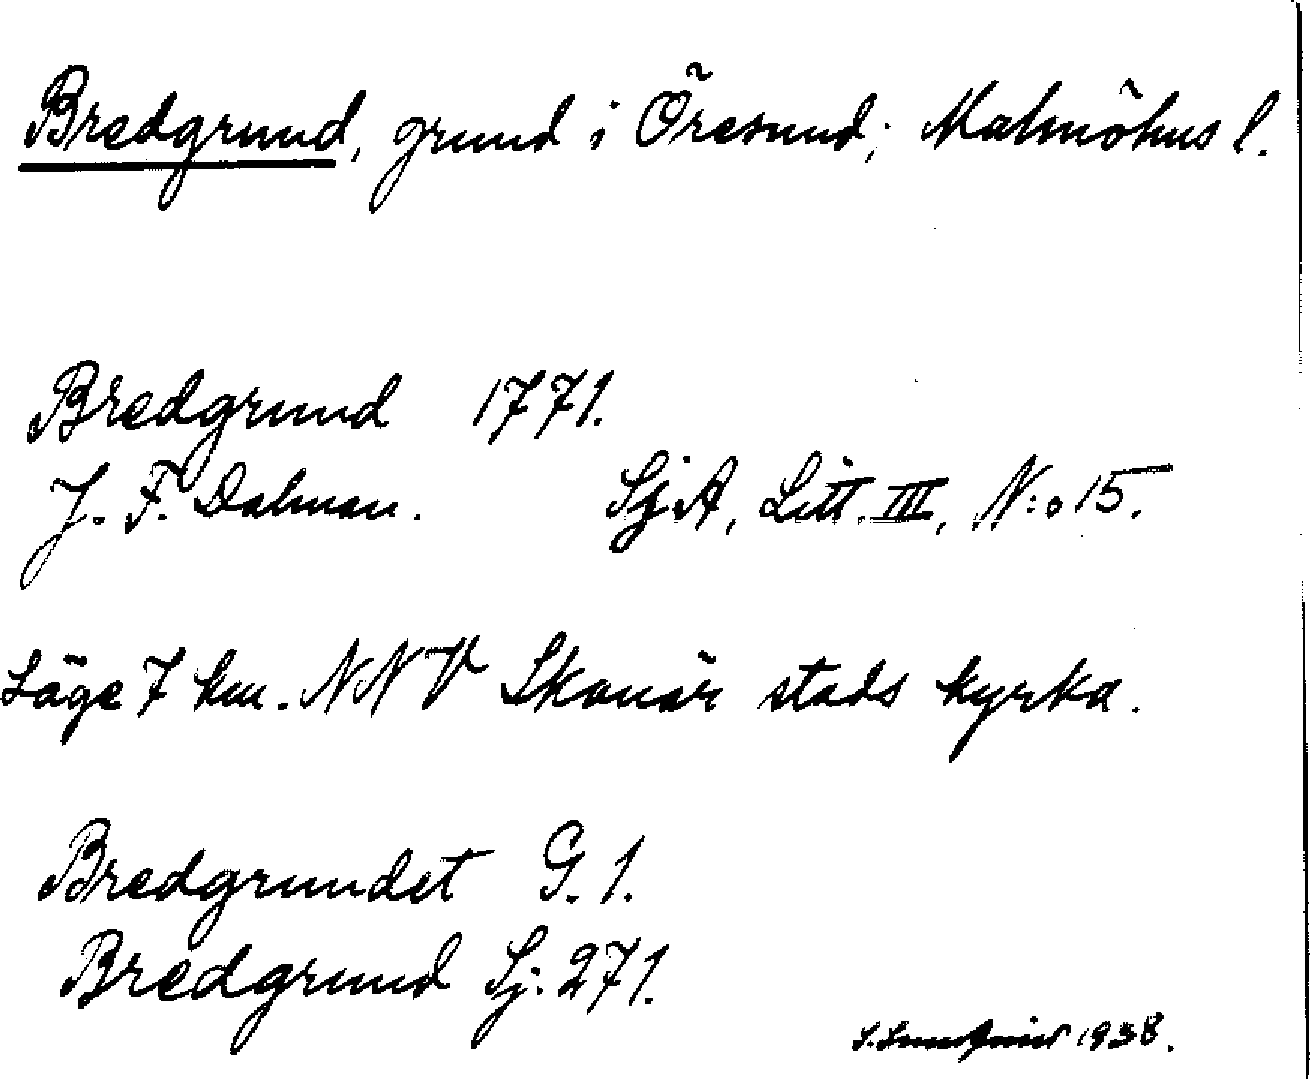 Bredgrund, grund i Öresund; Malmöhus l.
Bredgrund 1771.
J. F. Dalman. SjA, Litt. III, N:o 15.
Läge 7 km. NNV Skanör stads kyrka.
Bredgrundet G. 1.
Bredgrund Sj. 271.
1938.